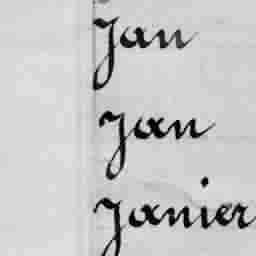 Jan
Jan
Janier